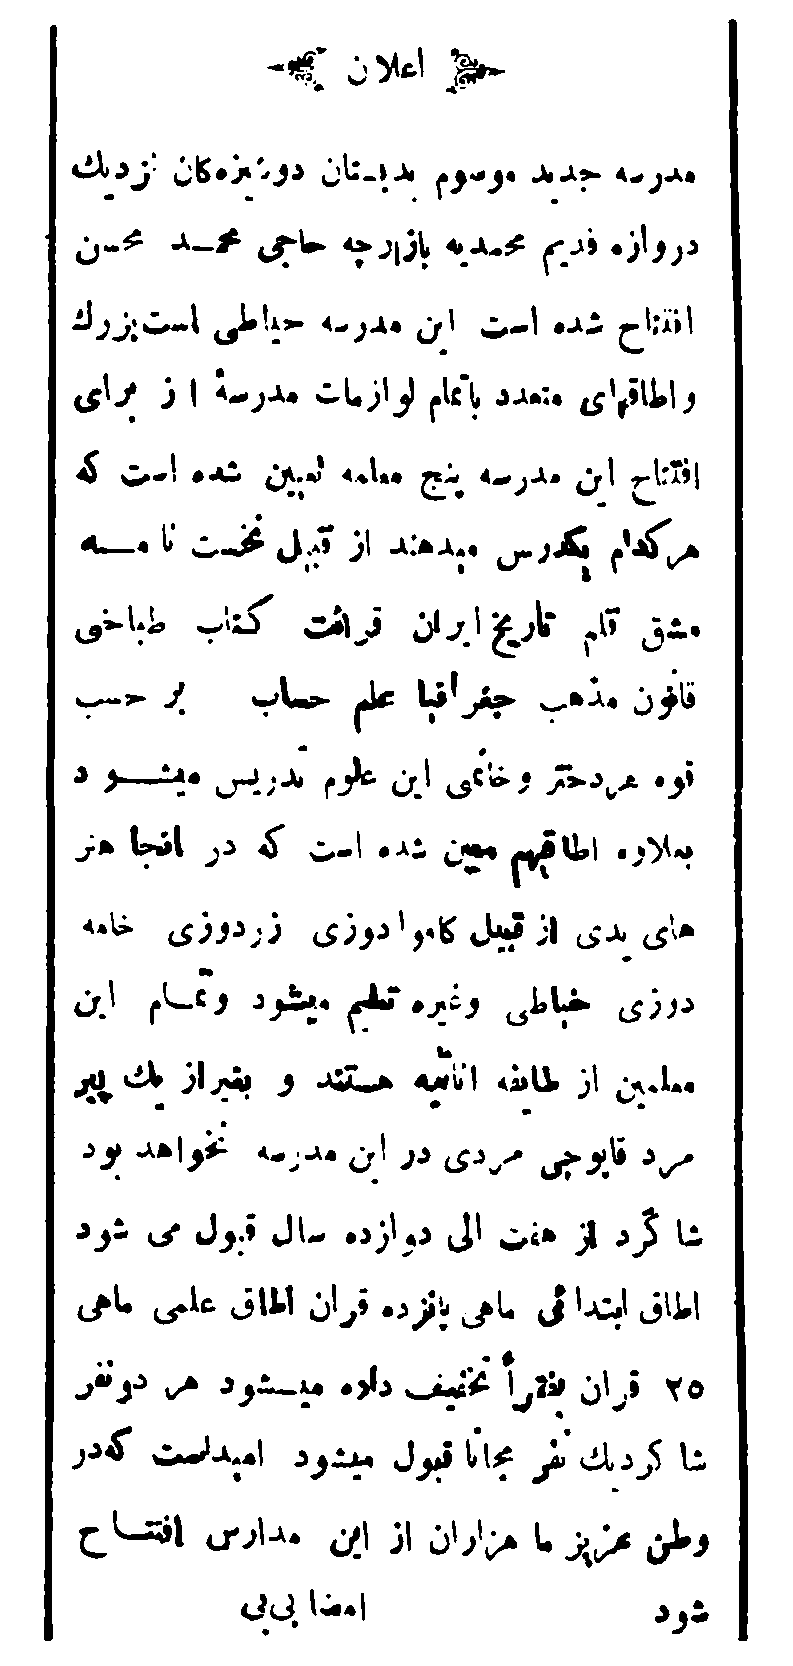 اعلان
مدرسه جدید موسوم بدبستان دوشیزه‌کان نزدیك
دروازه قدیم محمدیه بازارچه حاجی محمد محسن
افتتاح شده است این مدرسه حیاطی است بزرك
و اطاقهای متعدد باتمام لوازمات مدرسهٔ از برای
افتتاح این مدرسه پنج معلمه تعیین شده است که
هرکدام یکدرس میدهند از قبیل نخست نامه
مشق قلم تاریخ ایران قرائت کتاب طباخی
قانون مذهب جغرافیا علم حساب بر حسب
قوه هردختر و خانمی این علوم تدریس میشود
بعلاوه اطاقیهم معین شده است که در انجا هنر
های یدی از قبیل کاموا دوزی زردوزی خامه
دوزی خیاطی وغیره تعلیم میشود وتمام این
معلمین از طایفه اناثیه هستند و بغیراز یك پیر
مرد قاپوچی مردی در این مدرسه نخواهد بود
شا گرد از هفت الی دوازده سال قبول می شود
اطاق ابتدائی ماهی پانزده قران اطاق علمی ماهی
۲۵ قران بفقرأ تخفیف داده میشود هر دونفر
شا کردیك نفر مجانا قبول میشود امیداست که‌در
وطن عزیز ما هزاران از این مدارس افتتاح
شود امضا بی‌بی